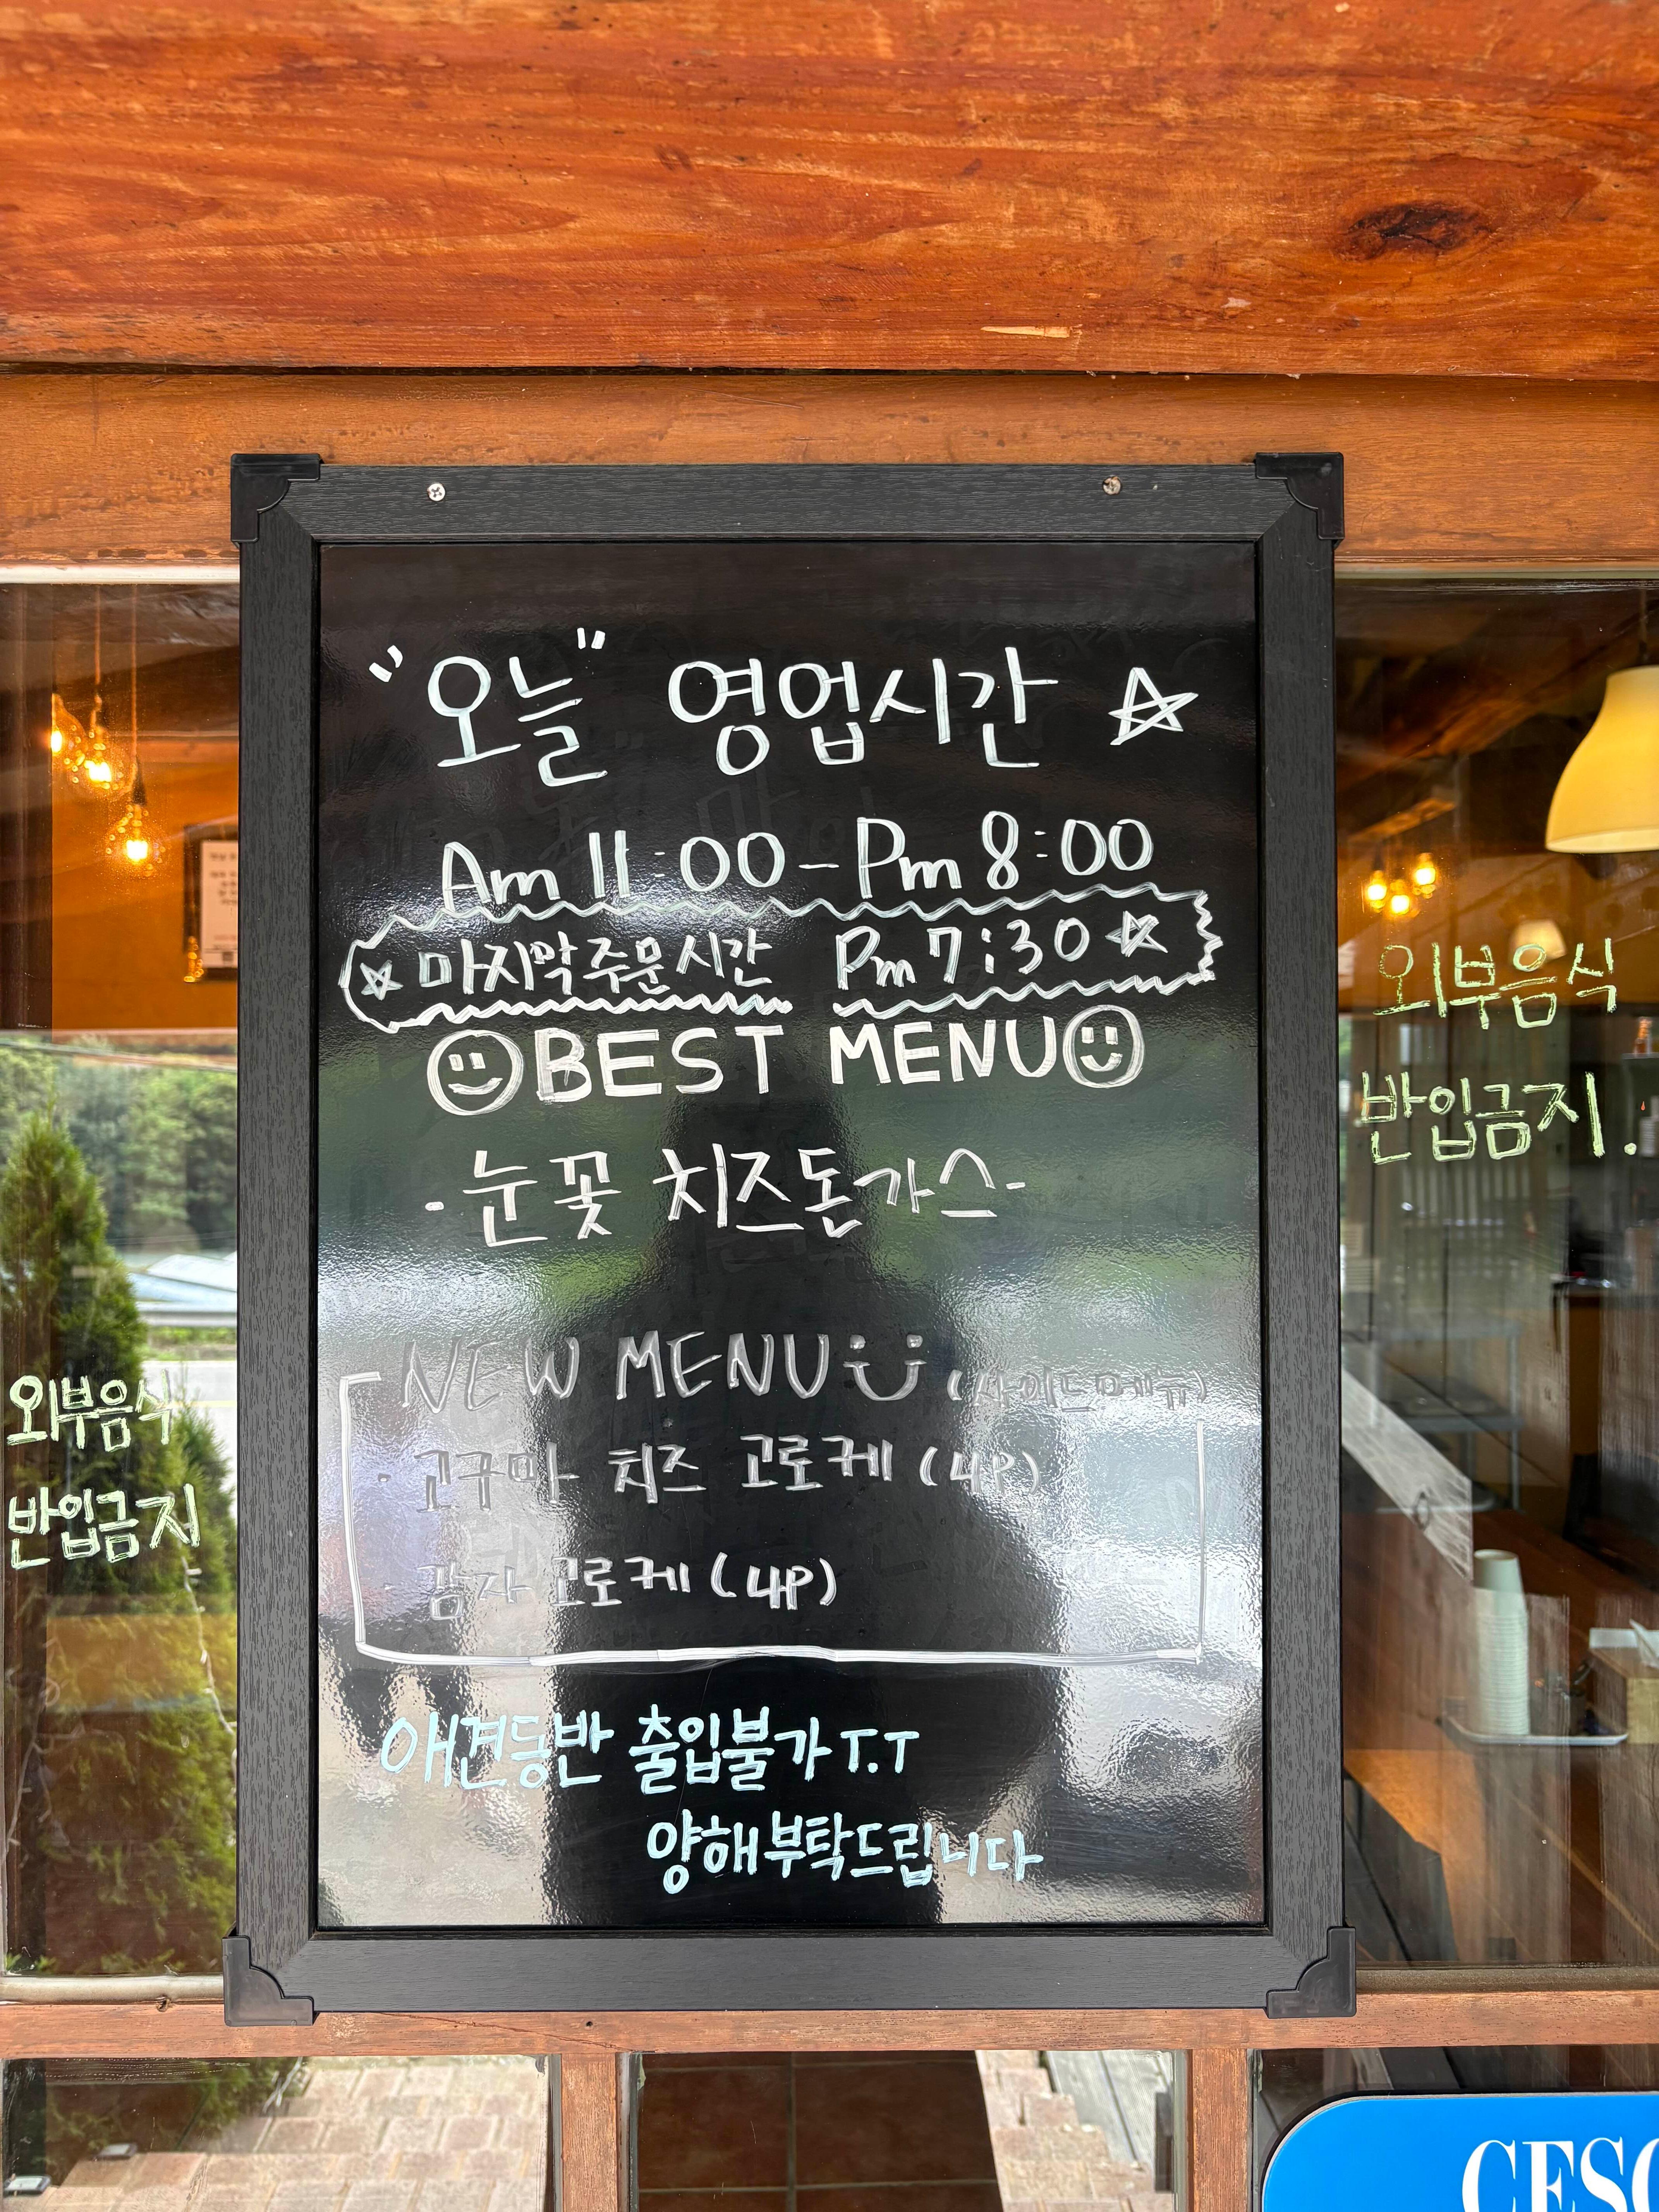 "오늘" 영업시간
Am 11:00 - Pm 8:00
마지막 주문시간 Pm 7:30
BEST MENU
· 눈꽃 치즈돈가스 -
NEW MENU (사이드메뉴)
· 고구마 치즈 고로케 (4P)
· 감자 고로케 (4P)
애견동반 출입불가 T.T
양해부탁드립니다
외부음식
반입금지
외부음식
반입금지.